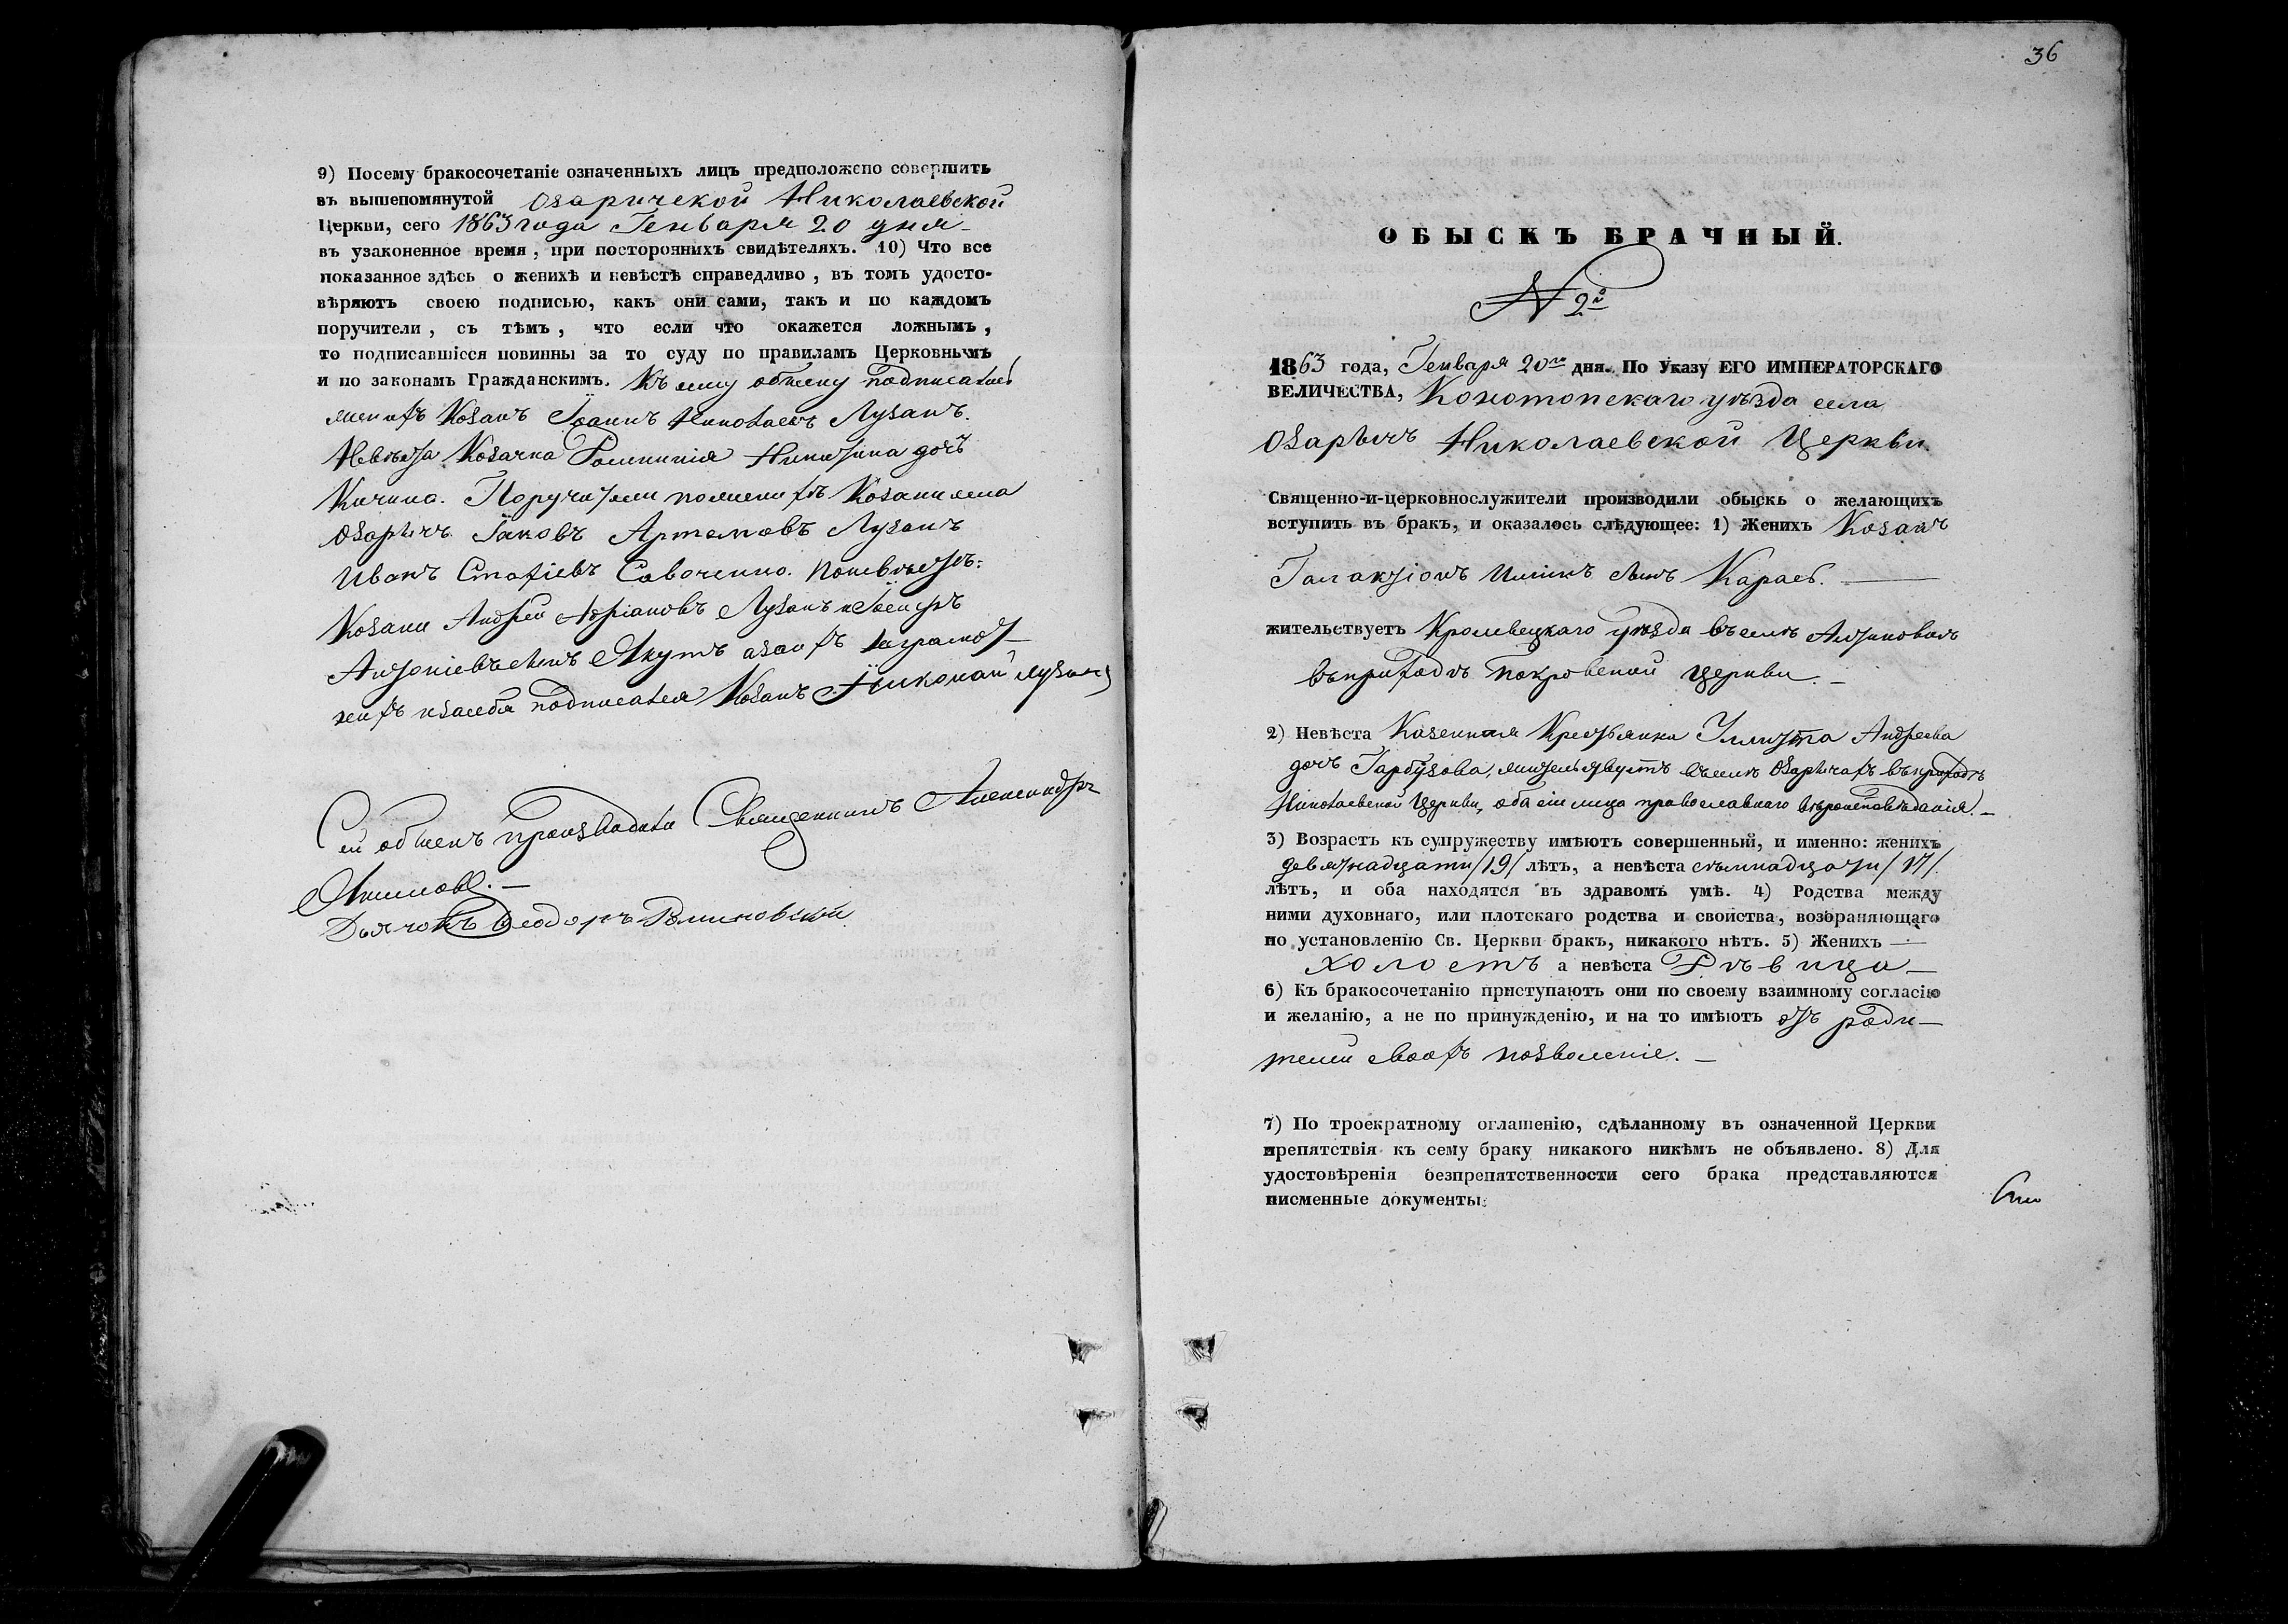 9) Посему бракосочетаніе означенныхъ лицъ предположено совершить
въ вышепомянутой Озарической Николаевской
Церкви, сего 1863 года Генваря 20 дня
въ узаконенное время, при постороннихъ свидѣтеляхъ. 10) Что все
показанное здѣсь о женихѣ и невѣстѣ справедливо, въ томъ удосто-
вѣряютъ своею подписью, какъ они сами, такъ и по каждомъ
поручители, съ тѣмъ, что если что окажется ложнымъ,
то подписавшіеся повинны за то суду по правиламъ Церковнымъ
и по законамъ Гражданскимъ. Къ сему обыску подписались
женихъ Козакъ Іоаннъ Николаевъ Лузанъ.
Невѣста Козачка Никитина дочь
Кичина. Поручители по женихѣ Козаки села
Озаричъ Іаковъ Артемовъ Лузанъ
Иванъ Савченко. По невѣстѣ:
Козаки Андрей Адріановъ Лузанъ и
Антоніевъ сынъ Якутъ а за ихъ неграмот-
ныхъ и за себя подписался Козакъ Николай Лузанъ
Сей обыскъ производили Священникъ Александръ
Дьячокъ Ѳеодоръ
36
ОБЫСКЪ БРАЧНЫЙ.
N 2й
1863 года, Генваря 20го дня. По Указу ЕГО ИМПЕРАТОРСКАГО
ВЕЛИЧЕСТВА, Конотопскаго уѣзда села
Озаричъ Николаевской Церкви
Священно-и-церковнослужители производили обыскъ о желающихъ
вступить въ бракъ, и оказалось слѣдующее: 1) Женихъ Козакъ
Галактіонъ Ильинъ сынъ
жительствуетъ Кролевецкаго уѣзда въ селѣ
въ приходѣ Покровской Церкви.
2) Невѣста Казенная Крестьянка Андреева
дочь Гарбузова, жительствуетъ въ селѣ Озаричахъ въ приходѣ
Николаевской Церкви, оба сіи лица православнаго вѣроисповѣданія.
3) Возрастъ къ супружеству имѣютъ совершенный, и именно: женихъ
девятнадцати /19/ лѣтъ, а невѣста семнадцати /17/.
лѣтъ, и оба находятся въ здравомъ умѣ. 4) Родства между
ними духовнаго, или плотскаго родства и свойства, возбраняющаго
по установленію Св. Церкви бракъ, никакого нѣтъ. 5) Женихъ
холостъ а невѣста дѣвица
6) Къ бракосочетанію приступаютъ они по своему взаимному согласію
и желанію, а не по принужденію, и на то имѣютъ отъ роди-
телей своихъ позволеніе.
7) По троекратному оглашенію, сдѣланному въ означенной Церкви
препятствія къ сему браку никакого никѣмъ не объявлено. 8) Для
удостовѣренія безпрепятственности сего брака представляются
писменные документы: